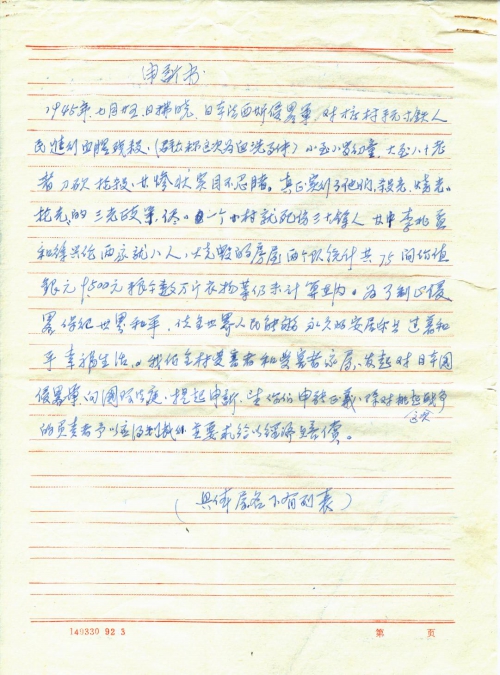 申诉书
1945年七月廿五日拂晓,日本法西斯侵略军,对 村手无寸铁人
民进行血腥残杀,(群众称这次为血洗 )小至八岁幼童,大至八十老
者刀砍枪杀,其惨状实目不忍睹。真正实行了他们,杀光,烧光,
抢光,的三光政策,仅一个小村就死伤三十余人其中李兆
和 兴伦两家就八人,火烧毁的房屋两个队统计共75间价值
银元9,500元粮食数万斤衣物等仍未计算在内。为了制止侵
略维护世界和平,使全世界人民能够永久的安居乐业过着和
平幸福生活。我们全村受害者和受害者家属,发起对日本国
侵略军向国际法庭,提起申诉, 你们申张正义,除对挑起这次战争
的负责者予以应得制裁外并要求给以经济赔偿。
(具体 名下有列表)
149330 92 3
第 页